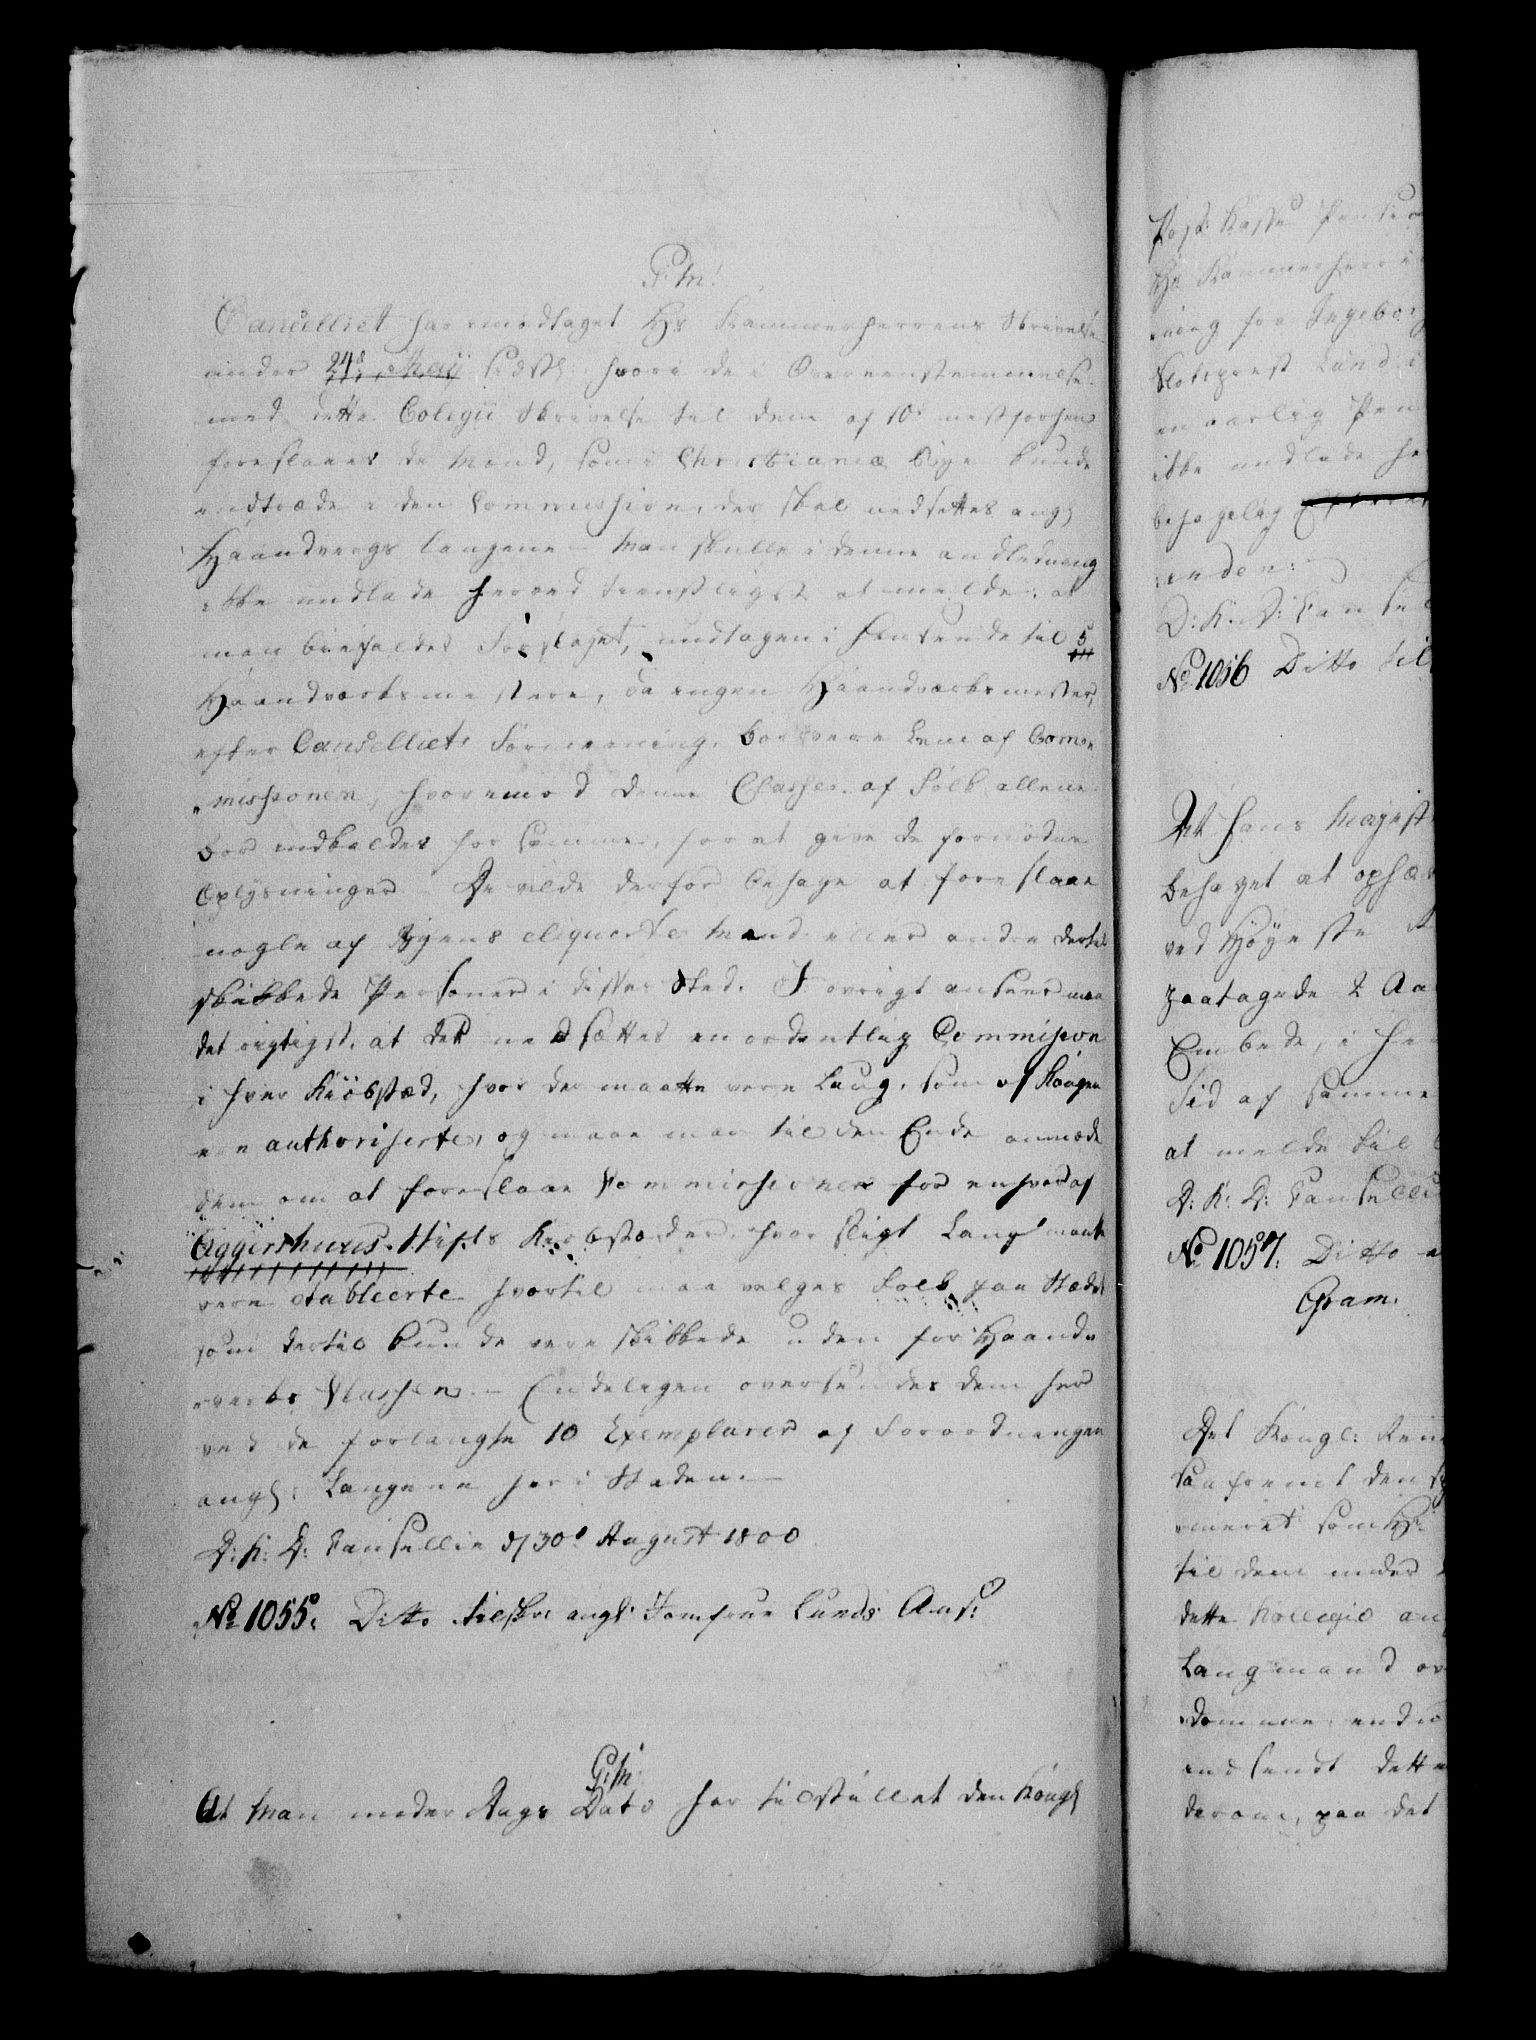 P: M:
Cancelliet har modtaget Hr Kammerherrens Skrivelse
under 24de Maÿ sidstl: hvori de i Overeenstemmelse
med dette Colegii Skrivelse til dem af 10de nestforhen
foreslaaer de Mænd, som i Christianiæ Bÿe kunde
indtræde i den Commission, der skal nedsettes angl:
Haandvergs laugene – Man skulle i denne andledning
ikke undlade herved tienstligst at melde, at
man biefalder Forslaget, undtagen i Henseende til 5
Haandværksmestere, da ingen Haandværksmester,
efter Cancelliets Formeening, bør være Lem af Com-
missionen, hvorimod denne Classe af Folk allene
bør indkaldes for samme, for at give de fornødne
Oplÿsninger – De vilde derfor behage at foreslaae
nogle af Bÿens eliqverte Mænd eller andre dertil
skikkede Personer i disses Sted. I øvrigt anseer man
det rigtigst, at der nedsættes en ordentlig Commission
i hver Kiöbstæd, hvor der maatte være Laug, som af Kongen
ere authoriserte, og maae man til den Ende anmode
dem om at foreslaae Commissioner for enhver af
Aggershuus Stifts Kiøbstæder, hvor sligt Laug maatte
være etableerte hvortil maa velges Folk paa Stædet
som dertil kunde være skikkede uden for Haand-
verks Classen. – Endeligen oversendes dem her
ved de forlangte 10 Exemplarer af Forordningen
angl: Laugene her i Staden. –
D: K: D: Cancellie d 30de August 1800
No 1055. Ditto tilskr: angl: Jomfrue Lunds Ans:
P: M:
At Man under Dags Dato har tilstillet den Kongl
Post Kasse Pension
Hr Kammerherr
ning for Ingeborg
Slotsprest Lund i
en aarlig Pen
ikke undlade he
behagelig Efterret
inden:
D: K: D: Cancel
No 1056 Ditto til
At Hans Majest
behaget at ophæ
ved Høÿeste R
paatagede 2 Aa
Embede, i Hen
Tid af samme
at melde til
D: K: D: Cancelli
No 1057. Ditto
Gram.
Det Kongl: Ren
saafremt den
meret som Hr
til dem under
dette Kollegio an
Laugmand ov
Domme endn
indsendt dette
derom, paa det